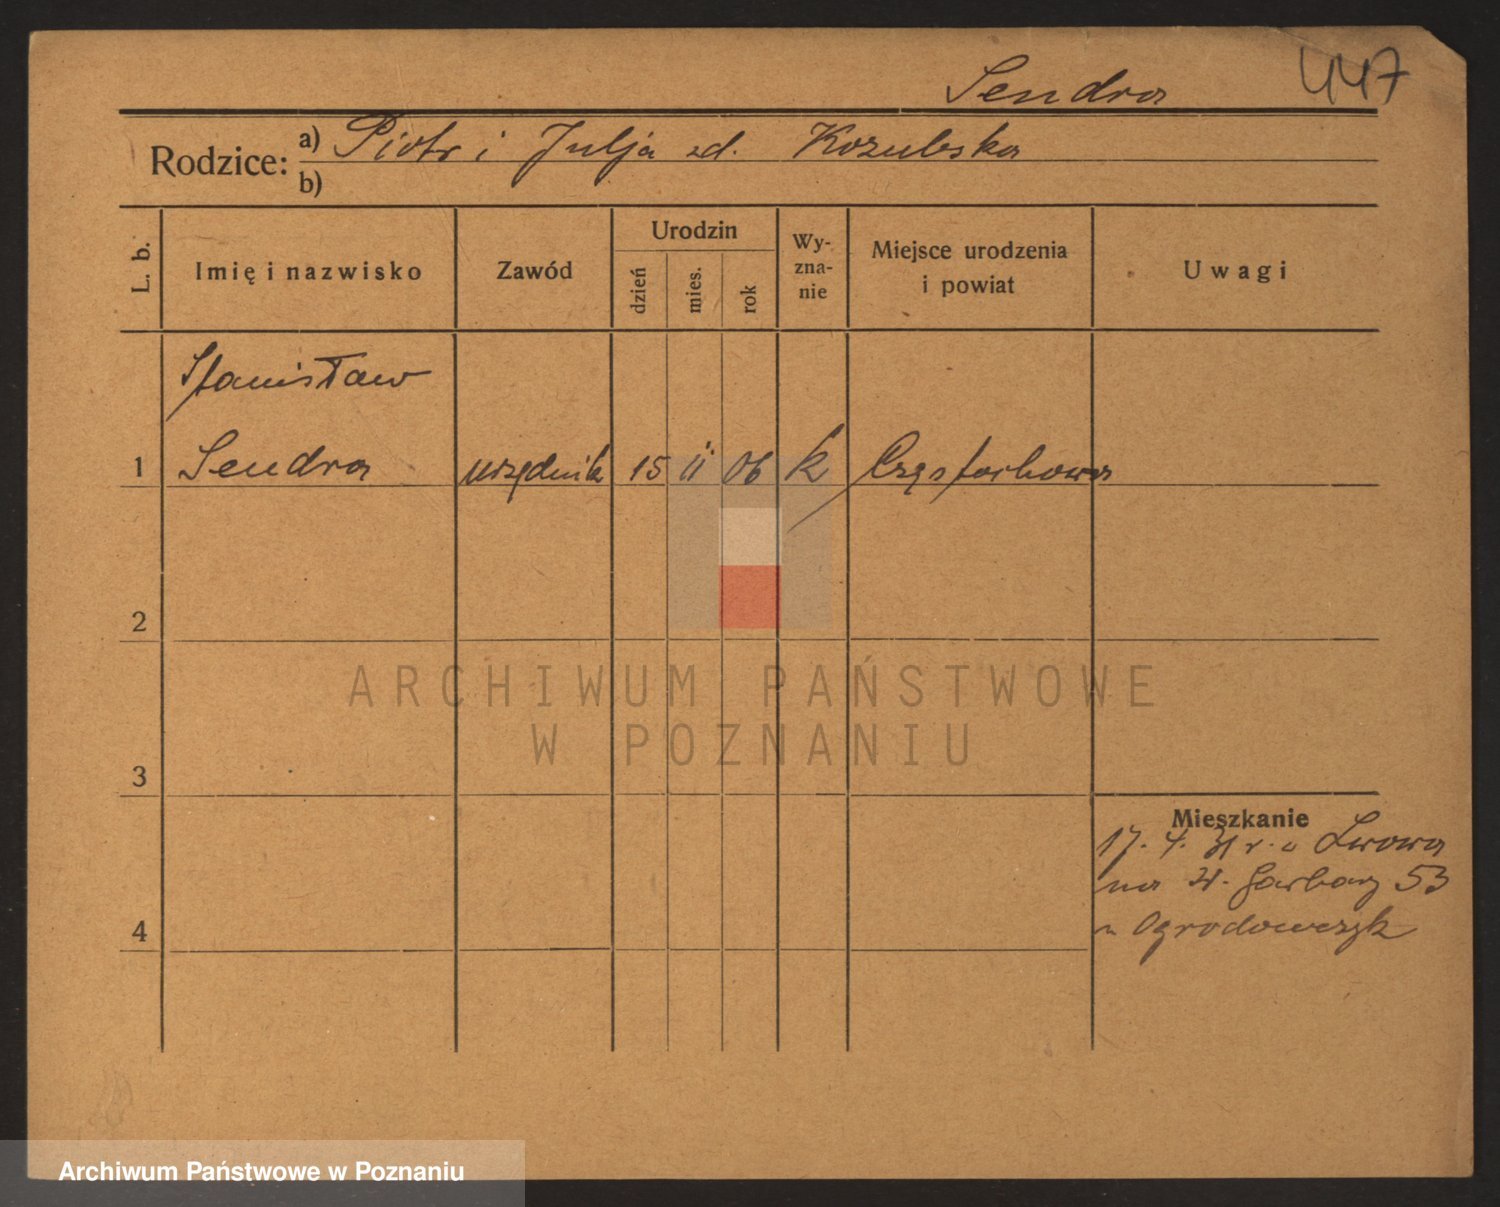 Sendra 447
Rodzice: a) Piotr i Julja zd. Kozubska
b)
L. b. Imię i nazwisko Zawód Urodzin dzień mies. rok Wy-zna-nie Miejsce urodzenia i powiat Uwagi
Stanisław
1 Sendra urzędnik 15 II 06 k Częstochowa
2
ARCHIWUM PAŃSTWOWE
W POZNANIU
3
Mieszkanie
17. 4. 31 r. Lwowa
na Garbary 53
4 Ogrodowczyk
Archiwum Państwowe w Poznaniu